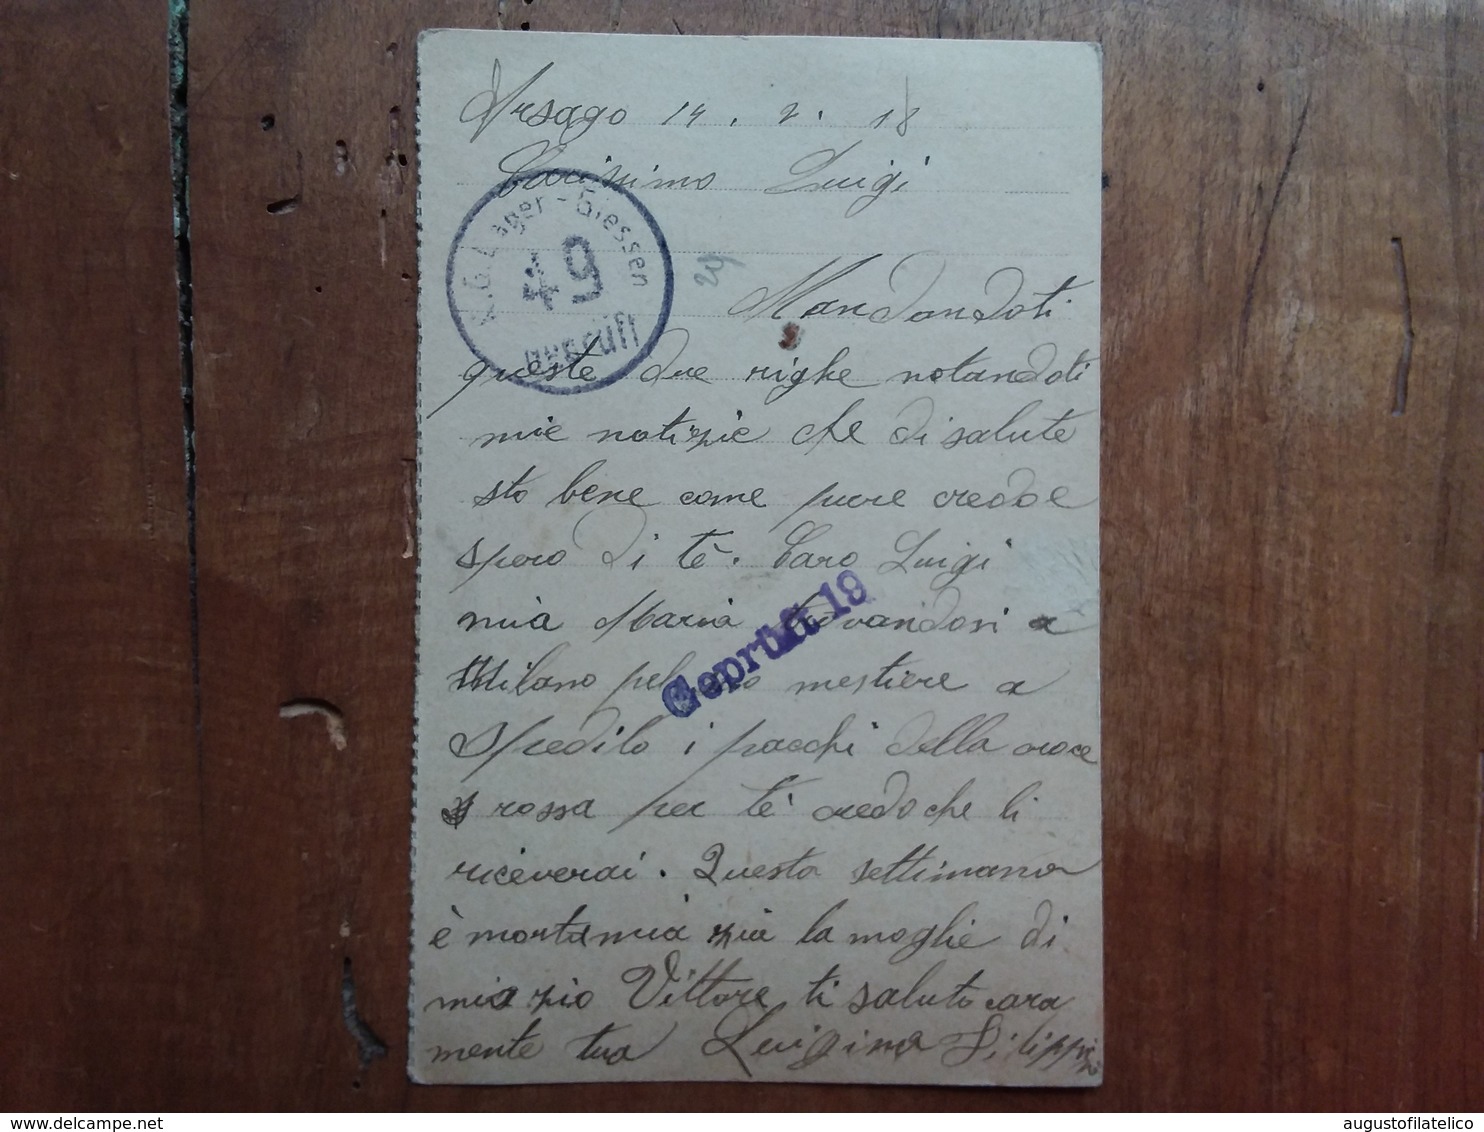 Arsago 14. 2. 18
Carissimo Luigi
K.G. Lager - Giessen
49
Geprüft
29
Mandandoti
queste due righe notandoti
mie notizie che di salute
sto bene come pure credo e
spero di tè. Caro Luigi
mia Maria trovandosi a
Milano mestiere a
Spedilo i pacchi della croce
rossa per tè credo che li
riceverai. Questa settimana
è morta mia zia la moglie di
mio zio Vittore, ti saluto cara
mente tua Luigina Filippini
Geprüft 19
augustofilatelico